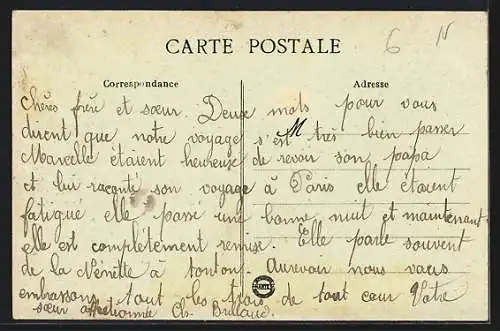 6 N
CARTE POSTALE
Correspondance Adresse
Chères frère et sœur. Deux mots pour vous
dirent que notre voyage s'est très bien passer
M
Marcelle étaient heureuse de revoir son papa
et lui raconté son voyage à Paris elle étaient
fatigué elle passé une bonne nuit et maintenant
elle est complètement remise. Elle parle souvent
de la Nénette à tonton. Aurevoir nous vous
embrassons tout les trois de tout cœur Votre
sœur affectionnée Cls.